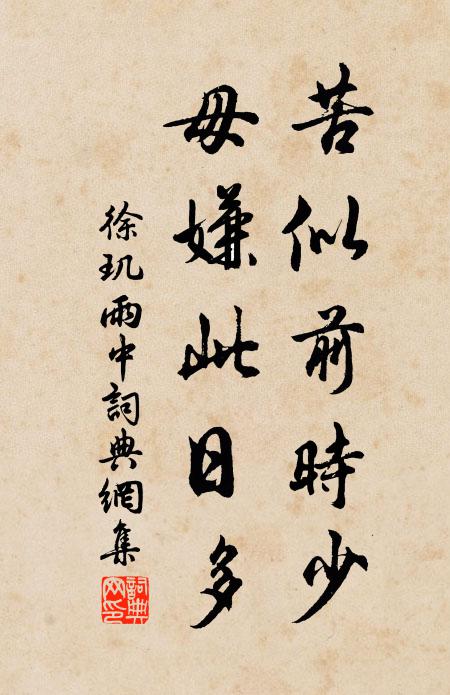 苦似前時少
毋嫌此日多
徐玑雨中詞典網集
詞典
网印